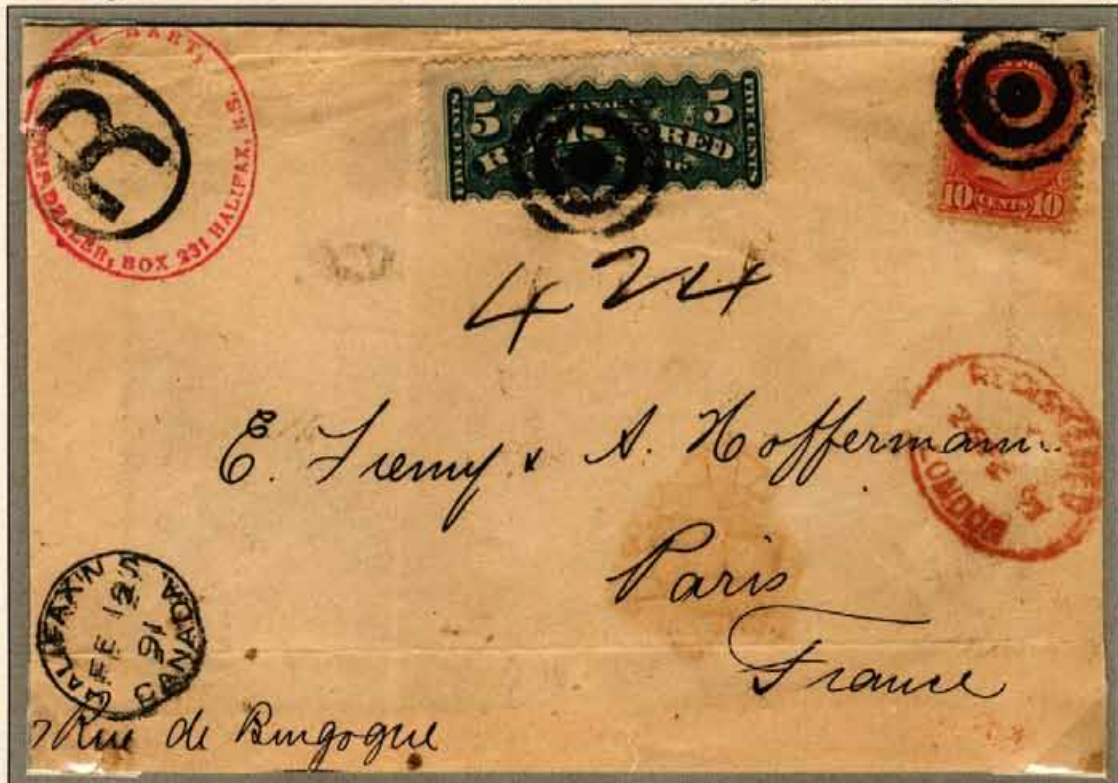 L. HART,
BOX 231 HALIFAX, N.S.
R
CANADA
5 REGISTERED 5
FIVE CENTS
FIVE CENTS
10 CENTS 10
424
E. Fremy & A. Hoffermann
Paris
France
REGISTERED
LONDON
HALIFAX N S
FE 12
91
CANADA
7 Rue de Bingogue